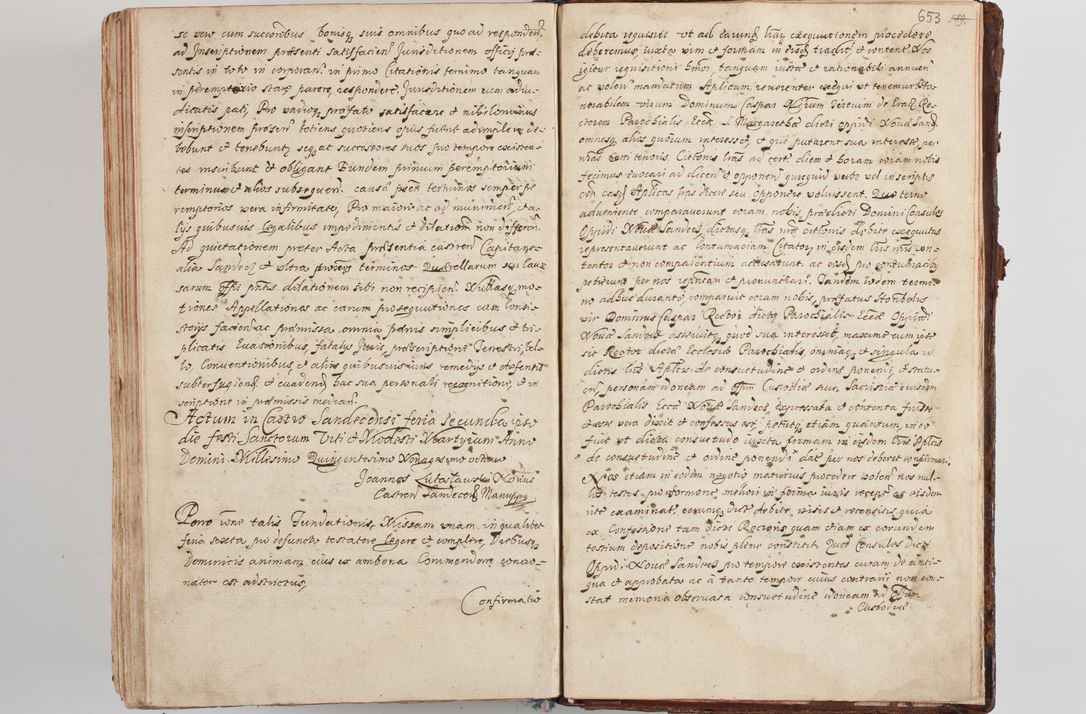 se vero cum succoribus bonisq suis omnibus quo ad responden
ad Inscriptionem præsenti satisfacien Jurisditionem officij præ
sentis in toto in corporan in primo Citationis termino tanquam
in peremptorio stare parere, respondere Jurisdictionem rem adiu
dicatis pati, Pro vadioq præfato satisfacere et nihilominus
inscriptionem præsen toties quoties opus fuerit adimplere de
bebunt et tenebunt seq at successores suos pro tempore existen
tes inscribunt et obligant Eundem primum peremptorium
terminum et alios subsequen. causa præsen terminos semper pe
remptorios vera infirmitate, Pro maiori ac ad munimen et a
lijs quibusuis legalibus impedimentis et dilationi non differen.
Ad quietationem præter Acta præsentia castren Capitane
alia Sandecen et ultra terminos Quærellarum seu Cau
sarum Offi pntis dilationem sibi non recipien Nullasq mo
tiones Appellationes ac earum prosequutiones cum Consi
storijs facien ac præmissa omnia pænis simplicibus et tri
plicatis Euasionibus, fatalys Juris, præscriptione Terrestri, bel
lo, Conventionibus et alijs quibusuis iuris remedys et defensio
subterfugiend et euadend hac sua personali recognitione, et in
scriptione in præmissis median.
Actum in Castro Sandecensi feria secunda ipso
die festi Sanctorum Viti et Modesti Martyrum Anno
Domini Millesimo Quingentesimo Nonagesimo octavo
Joannes Lutoslauski Notrius
Castren Sandecen Manuppa
Porro talis Fundationis, Missam unam, in qualibet
feria sexta pro defuncto testatore legere et complere, Diebusq
Dominicis animam eius ex ambona Commendare concio
nator est adstrictus,
Confirmatio
653
debita requisiti ut ad earund lrar exequutionem procedere
deberemus iuxta vim et formam in eisd tradit et conten Nos
igitur requisitioni tanquam iusta et rationabili annuen
ac volen mandatum Aplicum reverenter exequi ut tenemur Ho
norabilem virum Dominum Caspar Nigrum Tertium de Re
ctorem Parochialis Eccæ S. Margarethæ dicti oppidi Nouæ Sand
omnesq alios quorum interesset et qui putarent sua interesse, per
nras tenoris, Citionis lras ad cert diem et horam coram nobis
fecimus euocari ad dicen et opponen quicquid verbo vel in scriptis
con easd Aplicas lras dicere seu opponere voluissent. Quo termi
adueniente comparuerunt coram nobis, prædicti Domini Consules
Oppidi Nouæ Sandecz dictasq lras nræ citionis debite exequutas
repræsentaverunt ac contumaciam Citator in eisdem lris nris con
tentor et non comparentium accusarunt. ac eisd pro contumacib
petierunt per nos reputari et pronunciari. Tandem eodem termi
no adhuc durante, comparuit coram nobis, præfatus Honbilis
vir Dominus Caspar Rector dictæ Parochialis Eccæ Oppidi
Nouæ Sandecz asseruit, quod sua interesset, maxime cum ipse
sit Rector dictæ Ecclesiæ Parochialis, omniaq et singula in
dictis lris Aplicis de consuetudine et ordine ponendi, et statu
en, personam idoneam ad Offum Custodiæ siue Sacristiæ eiusdem
Parochialis Eccæ Nouæ Sandecz, expressata et contenta fuisse
et esse vera dixit et confessus est petijt, etiam quantum in eo
fuit ut dicta consuetudo iuxta formam in eisdem lris Aplicis
de consuetudine et ordine ponendi dat per nos deberet confirmari
Nos etiam in eodem negotio maturius procedere volen nonnul
los testes pro informone meliori in forma iuris recept ac eisdem
rite examinat, eorumq dict debite visis et recensitis, quia
ex Confessione tam dicti Rectoris quam etiam ex eorundem
testium depositione nobis plene constitit. Quod Consules dicti
Oppidi Nouæ Sandecz pro tempore existentes curam de anti
qua et approbata ac à tanto tempore cuius contrarij non con
stat memoria observata consuetudine idoneam ad Offum
Custodiæ